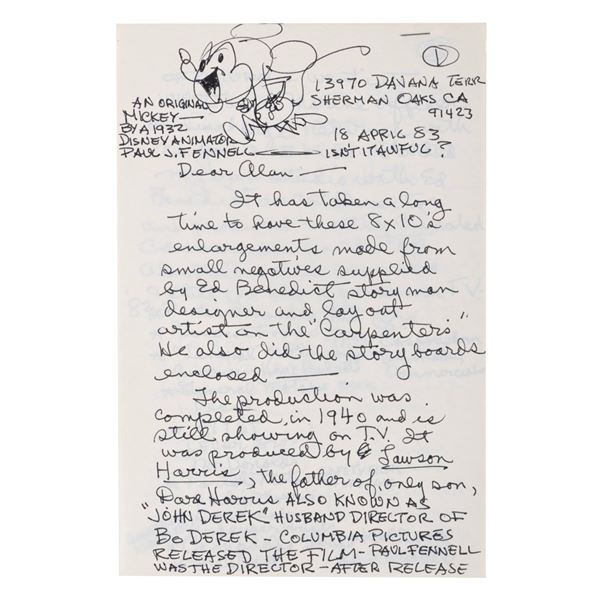 1
13970 DAVANA TERR
SHERMAN OAKS CA
91423
AN ORIGINAL
MICKEY—
BY A 1932
DISNEY ANIMATOR
PAUL J. FENNELL
18 APRIL 83
ISN'T IT AWFUL?
Dear Alan:—
It has taken a long
time to have these 8x10's
enlargements made from
small negatives supplied
by Ed Benedict story man
designer and lay out
artist on the "Carpenters"
He also did the story boards
enclosed —
The production was
completed in 1940 and is
still showing on T.V. It
was produced by Lawson
Harris, the father of, only son,
Dare Harris ALSO KNOWN AS
"JOHN DEREK" HUSBAND DIRECTOR OF
BO DEREK – COLUMBIA PICTURES
RELEASED THE FILM – PAUL FENNELL
WAS THE DIRECTOR – AFTER RELEASE